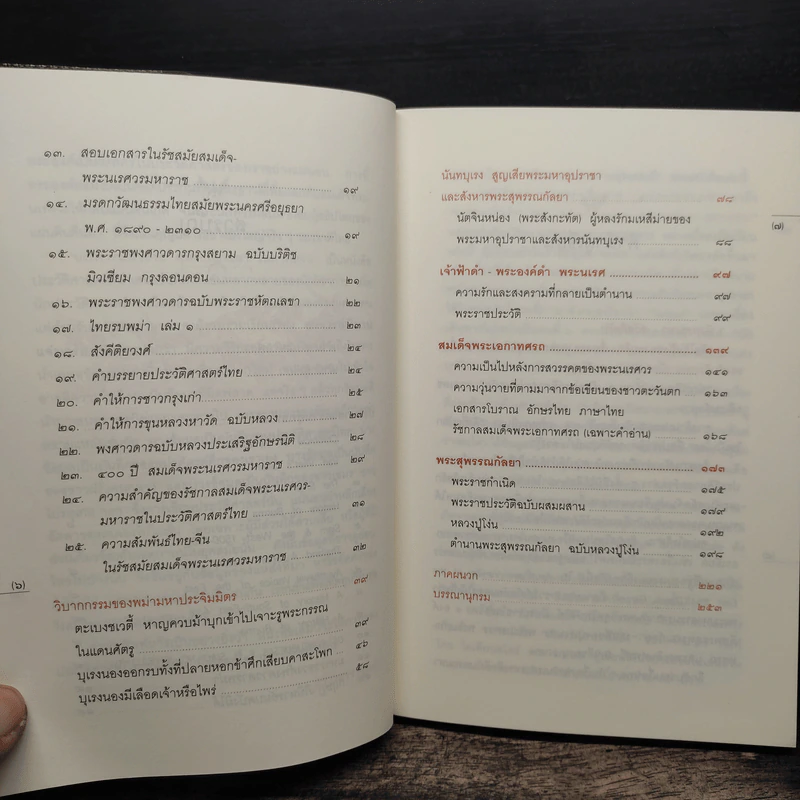 ๑๓. สอบเอกสารในรัชสมัยสมเด็จ-
พระนเรศวรมหาราช ๑๙
๑๔. มรดกวัฒนธรรมไทยสมัยพระนครศรีอยุธยา
พ.ศ. ๑๘๙๐ - ๒๓๑๐ ๑๙
๑๕. พระราชพงศาวดารกรุงสยาม ฉบับบริติช
มิวเซียม กรุงลอนดอน ๒๑
๑๖. พระราชพงศาวดารฉบับพระราชหัตถเลขา ๒๒
๑๗. ไทยรบพม่า เล่ม ๑ ๒๓
๑๘. สังคีติยวงศ์ ๒๔
๑๙. คำบรรยายประวัติศาสตร์ไทย ๒๔
๒๐. คำให้การชาวกรุงเก่า ๒๕
๒๑. คำให้การขุนหลวงหาวัด ฉบับหลวง ๒๗
๒๒. พงศาวดารฉบับหลวงประเสริฐอักษรนิติ ๒๘
๒๓. ๔๐๐ ปี สมเด็จพระนเรศวรมหาราช ๒๙
๒๔. ความสำคัญของรัชกาลสมเด็จพระนเรศวร-
มหาราชในประวัติศาสตร์ไทย ๓๑
๒๕. ความสัมพันธ์ไทย-จีน
ในรัชสมัยสมเด็จพระนเรศวรมหาราช ๓๒
(๖)
วิบากกรรมของพม่ามหาประจิมมิตร ๓๙
ตะเบงชเวตี้ หาญควบม้าบุกเข้าไปเจาะรูพระกรรณ
ในแดนศัตรู ๓๙
บุเรงนองออกรบทั้งที่ปลายหอกข้าศึกเสียบคาสะโพก ๔๖
บุเรงนองมีเลือดเจ้าหรือไพร่ ๕๘
นันทบุเรง สูญเสียพระมหาอุปราชา
และสังหารพระสุพรรณกัลยา ๗๘
(๗)
นัตจินหน่อง (พระสังกะทัต) ผู้หลงรักมเหสีม่ายของ
พระมหาอุปราชาและสังหารนันทบุเรง ๘๘
เจ้าฟ้าดำ - พระองค์ดำ พระนเรศ ๙๗
ความรักและสงครามที่กลายเป็นตำนาน ๙๗
พระราชประวัติ ๙๙
สมเด็จพระเอกาทศรถ ๑๓๙
ความเป็นไปหลังการสวรรคตของพระนเรศวร ๑๔๑
ความวุ่นวายที่ตามมาจากข้อเขียนของชาวตะวันตก ๑๖๓
เอกสารโบราณ อักษรไทย ภาษาไทย
รัชกาลสมเด็จพระเอกาทศรถ (เฉพาะคำอ่าน) ๑๖๘
พระสุพรรณกัลยา ๑๗๓
พระราชกำเนิด ๑๗๕
พระราชประวัติฉบับผสมผสาน ๑๗๙
หลวงปู่โง่น ๑๙๒
ตำนานพระสุพรรณกัลยา ฉบับหลวงปู่โง่น ๑๙๘
ภาคผนวก ๒๒๑
บรรณานุกรม ๒๕๓